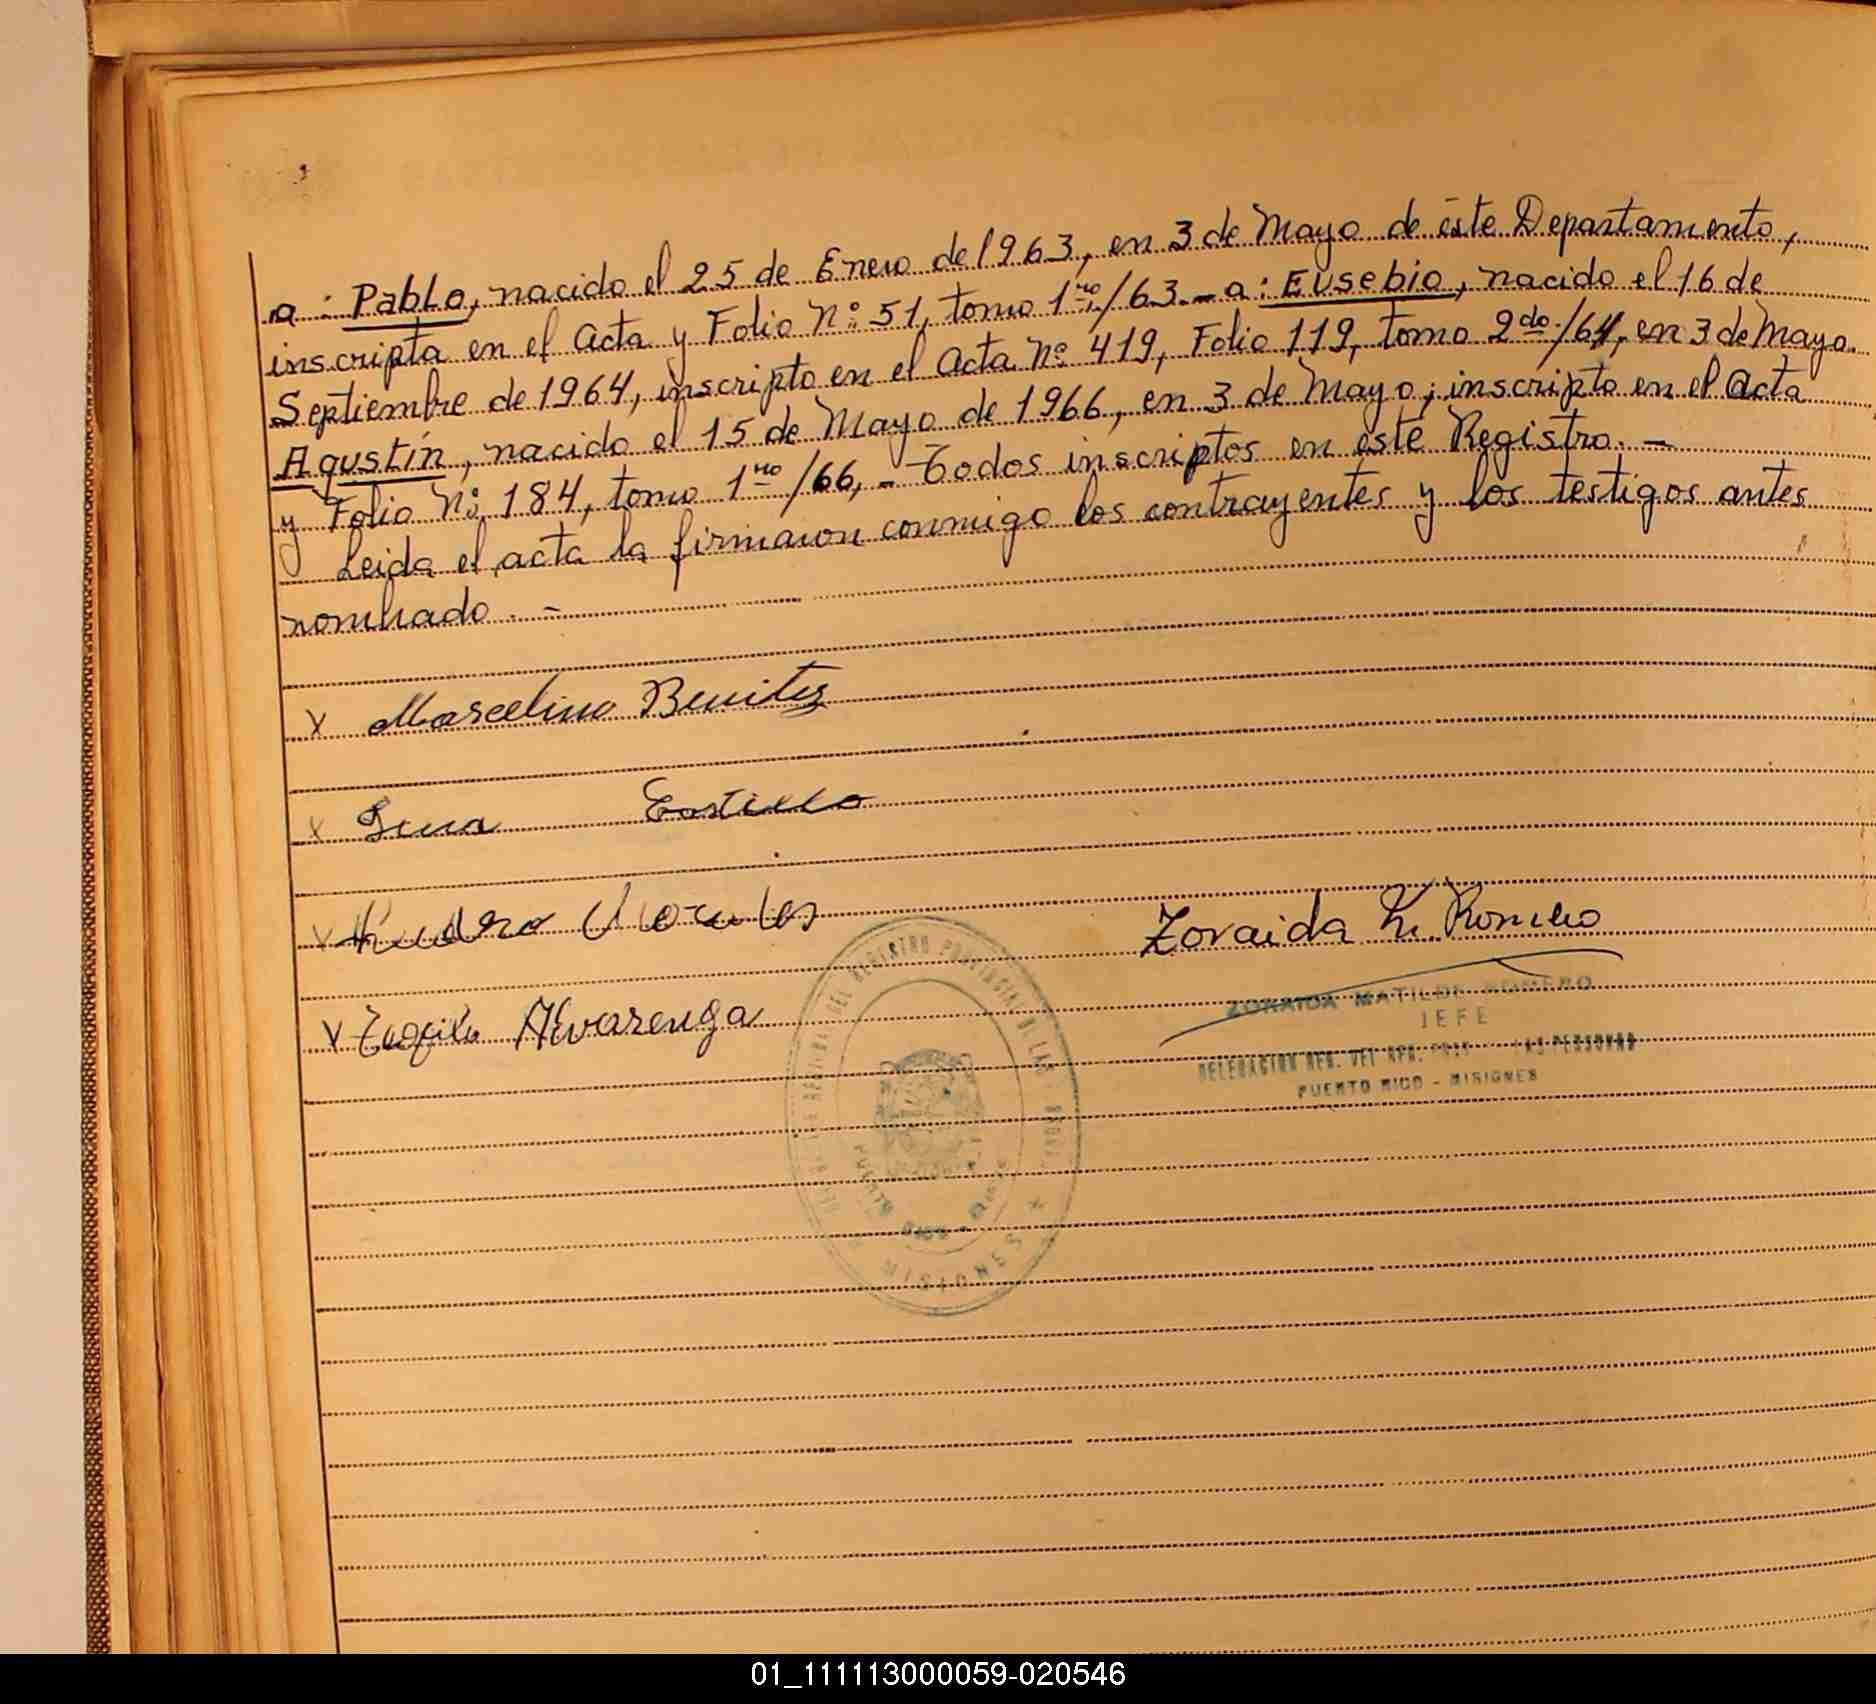 a: Pablo, nacido el 25 de Enero de 1963, en 3 de Mayo de éste Departamento,
inscripta en el Acta y Folio Nº 51, tomo 1ro/63.- a: Eusebio, nacido el 16 de
Septiembre de 1964, inscripto en el Acta Nº 419, Folio 119, tomo 2do/64, en 3 de Mayo.
Agustín, nacido el 15 de Mayo de 1966, en 3 de Mayo; inscripto en el Acta
y Folio Nº 184, tomo 1ro/66,- Todos inscriptos en este Registro.-
Leida el acta la firmaron conmigo los contrayentes y los testigos antes
nombrado.-
x Marcelino Benitez
x Castillo
x
Zoraida M. Romero
x Alvarenga
ZORAIDA MATILDE ROMERO
JEFE
DELEGACION REG. DEL REG. PROV. LAS PERSONAS
PUERTO RICO - MISIONES
DEL REGISTRO PROVINCIAL DE LAS
PUERTO RICO
MISIONES
01_111113000059-020546